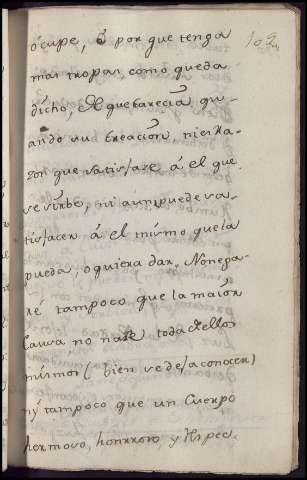 102
ócupe, ó por que tenga
mas tropas, como queda
dícho,
ando su creacíon, ni es Ra-
zon que satisface á el que
se sirbe, ni aun puede sa-
tisfacer á el mismo que la
pueda, o quiera dar, No nega-
ré tampoco que la maíor
Causa no nase toda de ellos
mismos ( bien se deja conocer)
ny tampoco que un Cuerpo
hermoso, honrroso, y Respec-